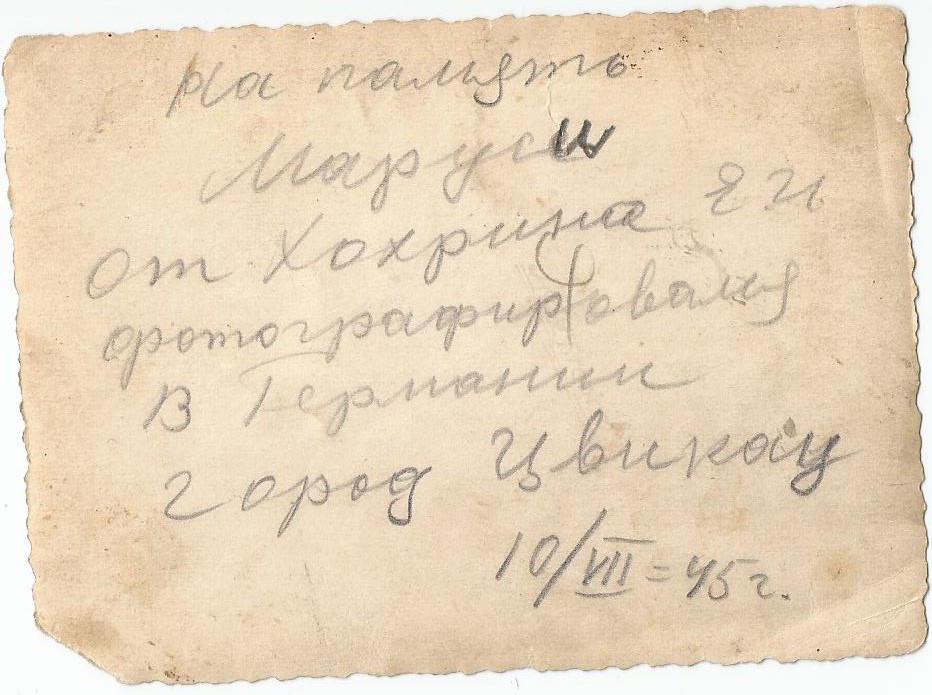 На память
Маруси
от Хохрина Я И
фотографировался
в Германии
город Цвикац
10/VIII = 45 г.